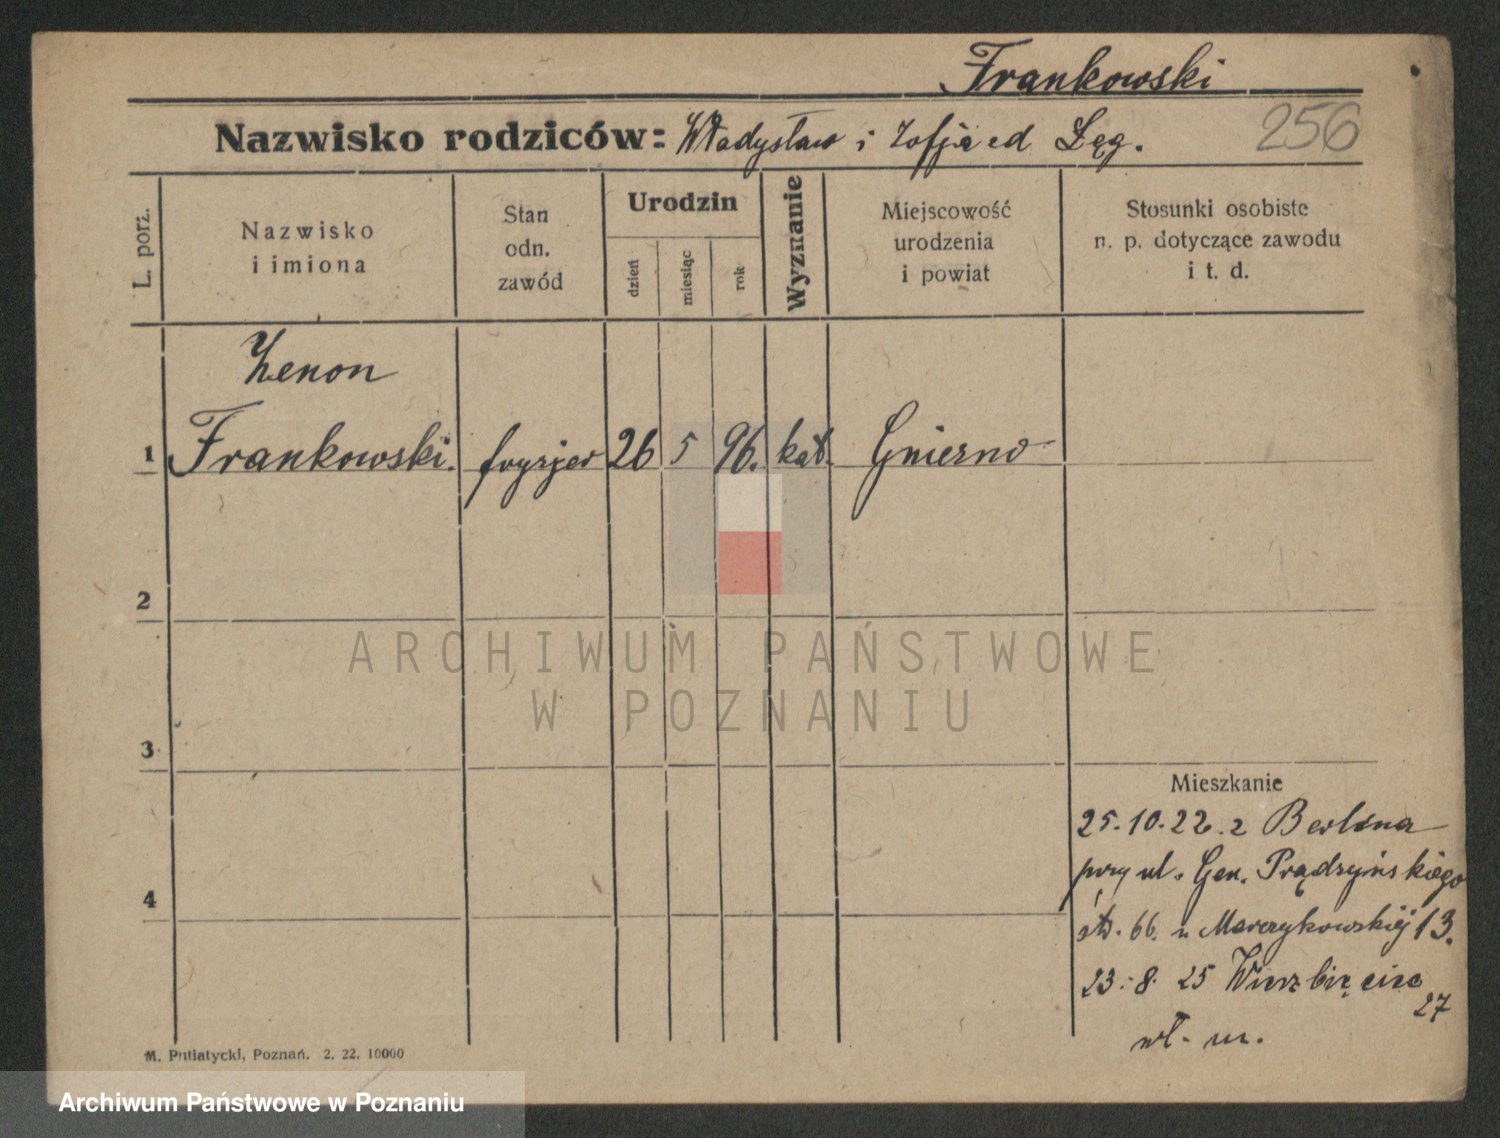 Frankowski
Nazwisko rodziców: Władysław i Zofja ed Łęg.
256
L. porz.
Nazwisko
i imiona
Stan
odn.
zawód
Urodzin
dzień
miesiąc
rok
Wyznanie
Miejscowość
urodzenia
i powiat
Stosunki osobiste
n. p. dotyczące zawodu
i t. d.
Zenon
1 Frankowski. fryzjer 26 5 96. kat. Gniezno
2
ARCHIWUM PAŃSTWOWE
W POZNANIU
3
Mieszkanie
25.10.22. z Berlina
przy ul. Gen. Prądzyńskiego
4
66. u Marczykowskiej 13.
23.-8. 25 Wierzbięcice
27
wł. m.
M. Putiatycki, Poznań. 2. 22. 10000
Archiwum Państwowe w Poznaniu